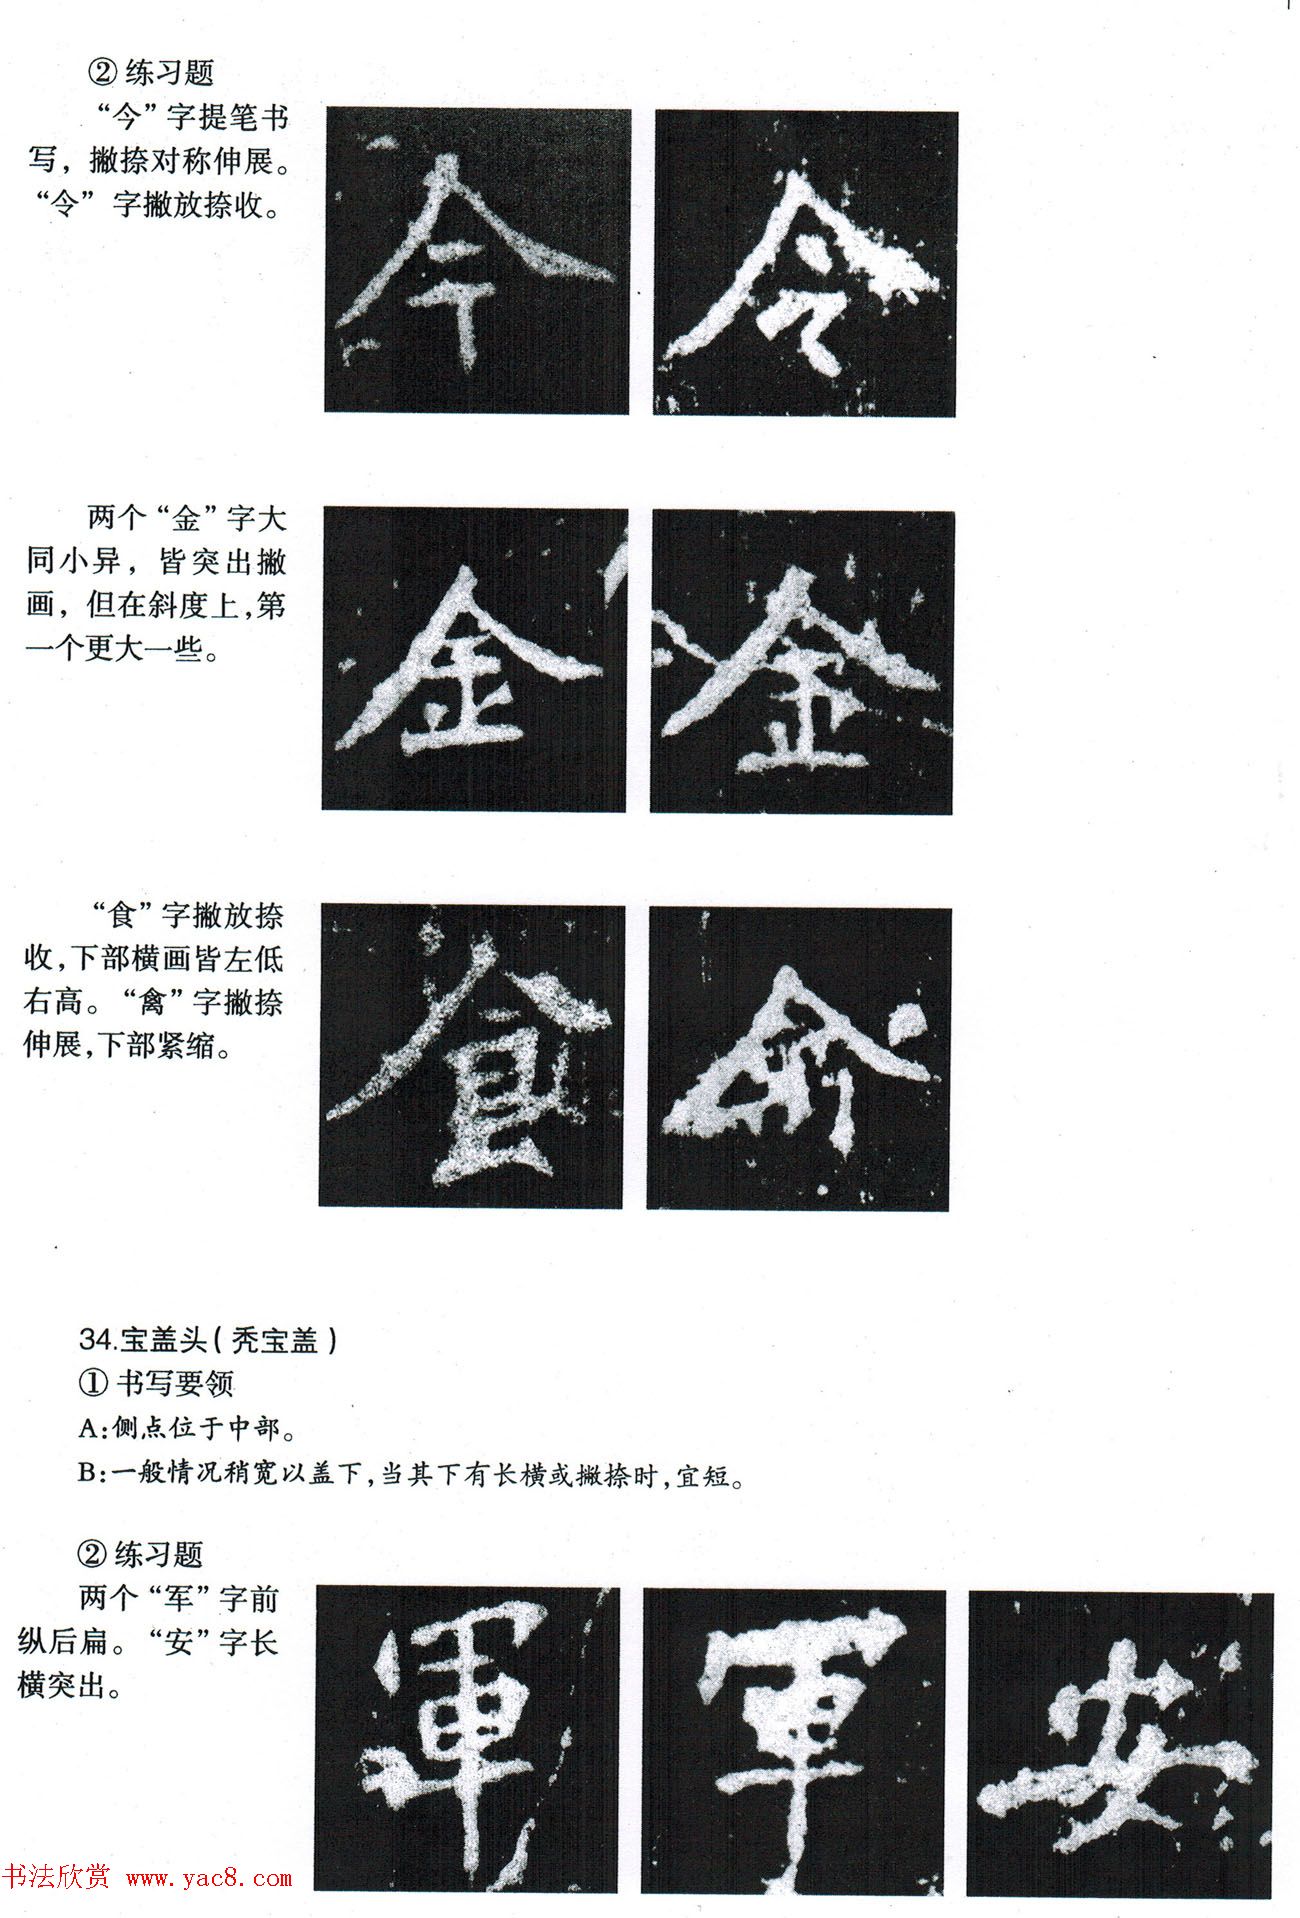 ② 练习题
“今”字提笔书
写，撇捺对称伸展。
“令”字撇放捺收。
今 令
两个“金”字大
同小异，皆突出撇
画，但在斜度上，第
一个更大一些。
金 金
“食”字撇放捺
收，下部横画皆左低
右高。“禽”字撇捺
伸展，下部紧缩。
食 禽
34.宝盖头（秃宝盖）
① 书写要领
A：侧点位于中部。
B：一般情况稍宽以盖下，当其下有长横或撇捺时，宜短。
② 练习题
两个“军”字前
纵后扁。“安”字长
横突出。
軍 軍 安
书法欣赏 www.yac8.com